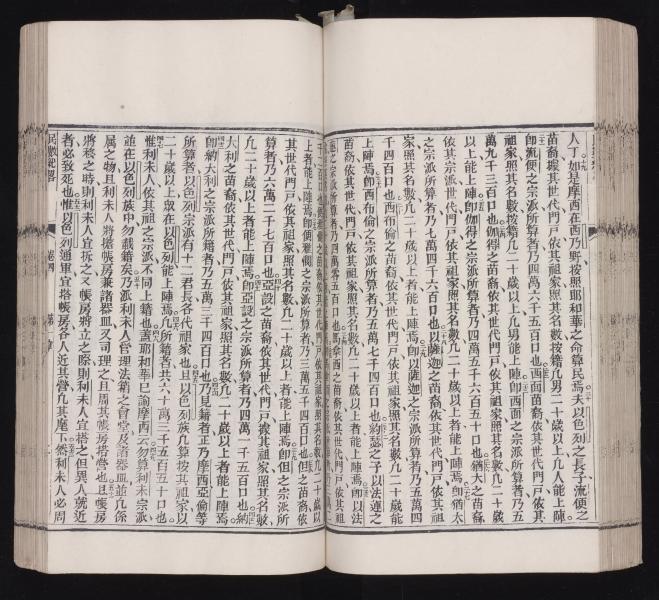 人丁。如是摩西在西乃野按照耶和華之命算民焉。夫以色列之長子流便之
苗裔據其世代門戶依其祖家照其名數按籍凡男二十歲以上凡人能上陣
即流便之宗派所算者乃四萬六千五百口也。西面苗裔依其世代門戶依其
祖家照其名數按籍凡二十歲以上凡男能上陣即西面之宗派所算者乃五
萬九千三百口也。伽得之苗裔依其世代門戶依其祖家照其名數凡二十歲
以上能上陣即伽得之宗派所算者乃四萬五千六百五十口也。猶大之苗裔
依其宗派世代門戶依其祖家照其名數凡二十歲以上者能上陣焉。即猶大
之宗派所算者乃七萬四千六百口也。以薩迦之苗裔依其世代門戶依其祖
家照其名數凡二十歲以上者能上陣焉。即以薩迦之宗派所算者乃五萬四
千四百口也。西布倫之苗裔依其世代門戶依其祖家照其名數凡二十歲能
上陣焉即西布倫之宗派所算者乃五萬七千四百口也。約瑟之子以法連之
苗裔依其世代門戶依其祖家照其名數凡二十歲以上者能上陣焉。即以法
連之宗派所算者乃四萬零五百口也。馬拿西之苗裔依其世代門戶依其祖
苗裔依其世代門戶依其祖家照其名數凡二十歲以
上者能上陣焉即便雅憫之宗派所算者乃三萬五千四百口也。但之苗裔依
其世代門戶依其祖家照其名數凡二十歲以上者能上陣焉。即但之宗派所
算者乃六萬二千七百口也。亞設之苗裔依其世代門戶據其祖家照其名數
凡二十歲以上者能上陣焉。即亞設之宗派所算者乃四萬一千五百口也。納
大利之苗裔依其世代門戶依其祖家照其名數凡二十歲以上者能上陣焉。
即納大利之宗派所籍者乃五萬三千四百口也。乃見籍者正乃摩西亞倫等
所算者以色列宗派有十二君長各代祖家也。且以色列族凡算按其祖家以
二十歲以上眾在以色列能上陣焉。凡所籍者共六十萬三千五百五十口也。
惟利未人依其祖之宗派不同上籍也。蓋耶和華已諭摩西云勿算利未宗派
並在以色列族中勿載籍矣。乃派利未人管理法箱之會堂及諸器皿並凡係
屬之物且利未人將擡帳房兼諸器皿又司理之且周其帳房搭營也。且帳房
將移之時則利未人宜拆之又帳房將立之際則利未人宜搭之但異人就近
者必致死也。惟以色列通軍宜搭帳房各人近其營凡其麾下然利未人必周
民數紀畧 卷四